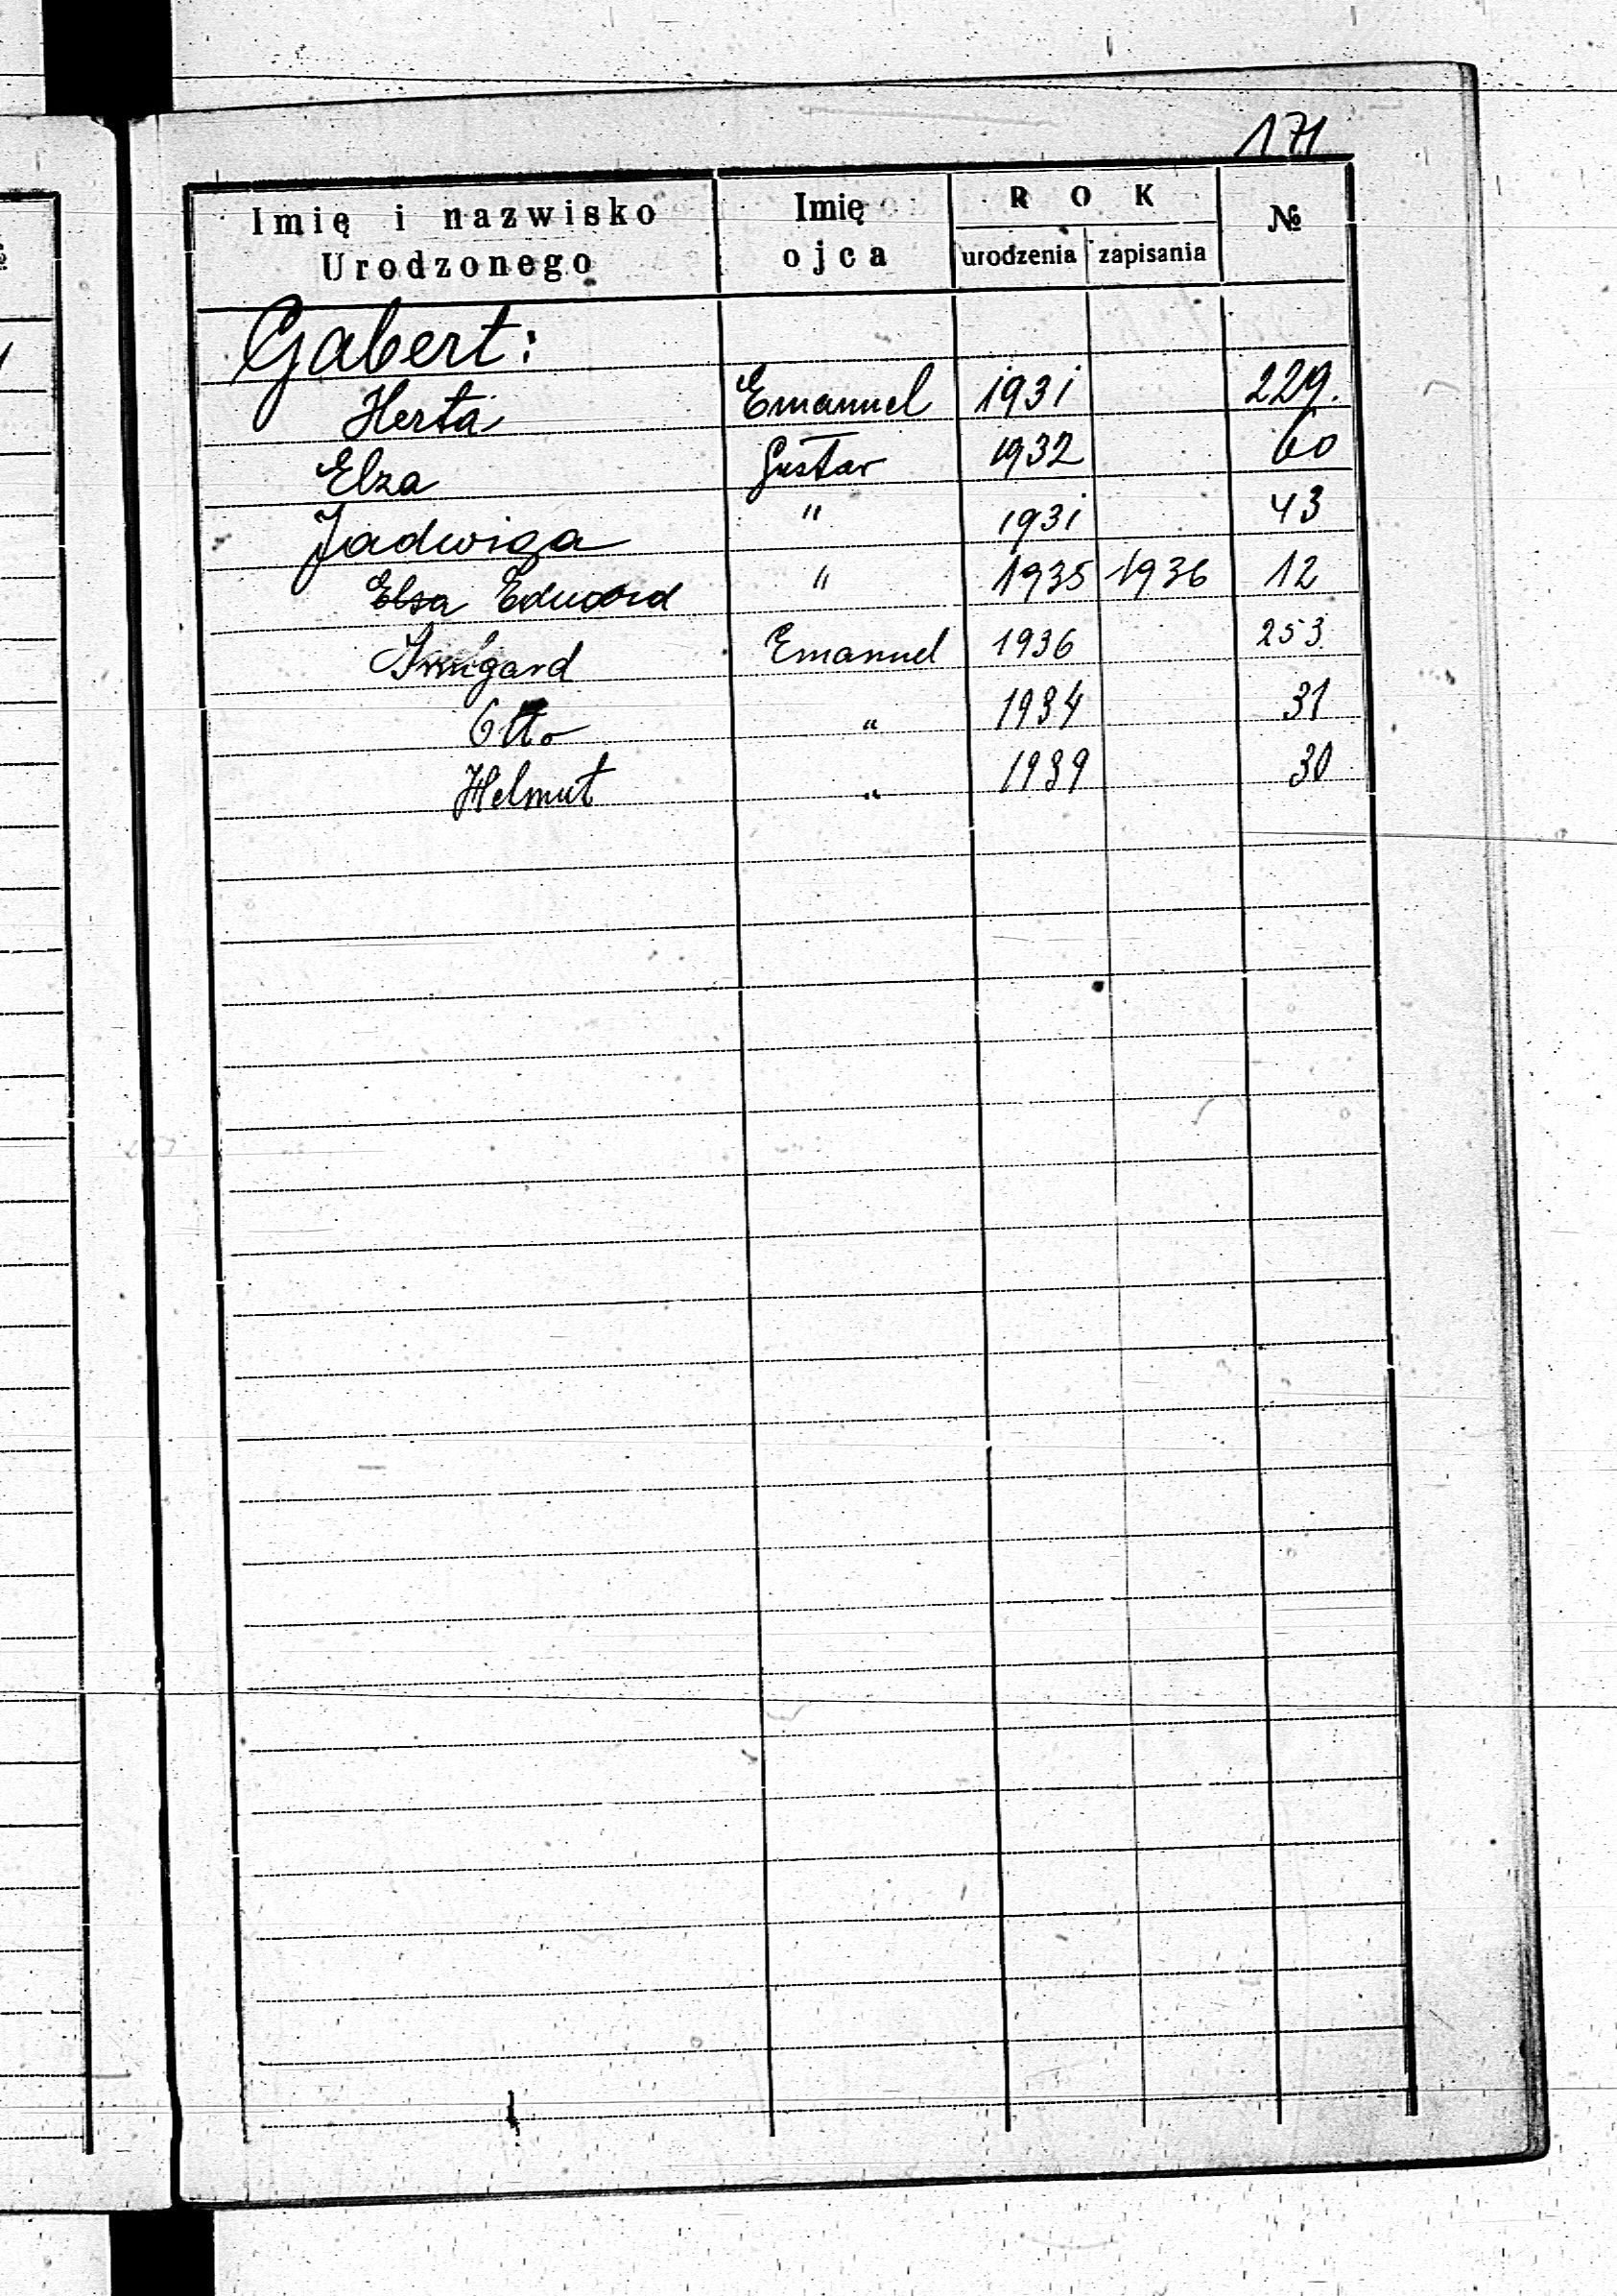 171
Imię i nazwisko Urodzonego Imię ojca ROK urodzenia zapisania №
Gabert:
Herta Emanuel 1931 229.
Elza Gustav 1932 60
Jadwiga " 1931 43
Elsa Eduard " 1935 1936 12
Irmgard Emanuel 1936 253
Otto " 1934 31
Helmut " 1939 30